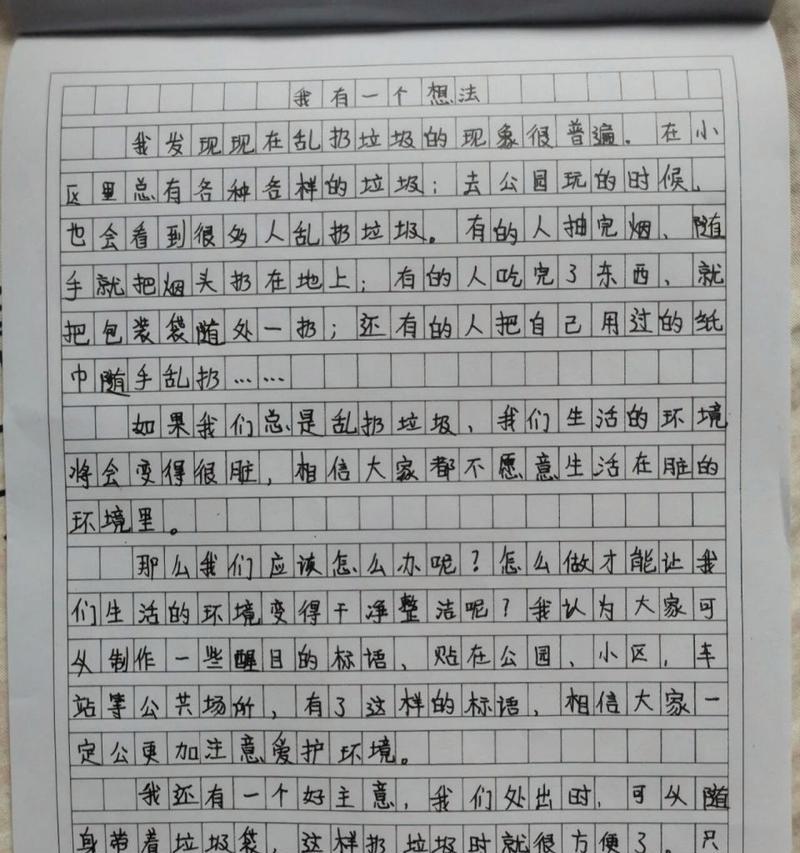 我有一个想法
我发现现在乱扔垃圾的现象很普遍。在小
区里总有各种各样的垃圾；去公园玩的时候、
也会看到很多人乱扔垃圾。有的人抽完烟、随
手就把烟头扔在地上；有的人吃完了东西、就
把包装袋随处一扔；还有的人把自己用过的纸
巾随手乱扔……
如果我们总是乱扔垃圾、我们生活的环境
将会变得很脏，相信大家都不愿意生活在脏的
环境里。
那么我们应该怎么办呢？怎么做才能让我
们生活的环境变得干净整洁呢？我认为大家可
以制作一些醒目的标语、贴在公园、小区，车
站等公共场所，有了这样的标语、相信大家一
定公更加注意爱护环境。
我还有一个好主意，我们处出时，可以随
身带着垃圾袋，这样扔垃圾时就很方便了。只